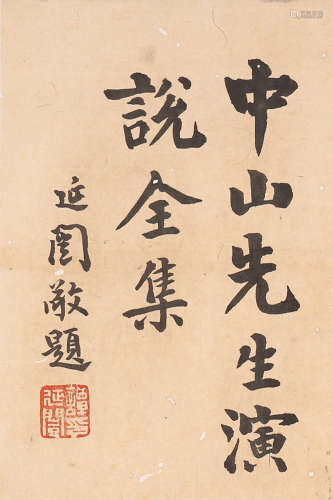 中山先生演
說全集
延闓敬題
譚延闓